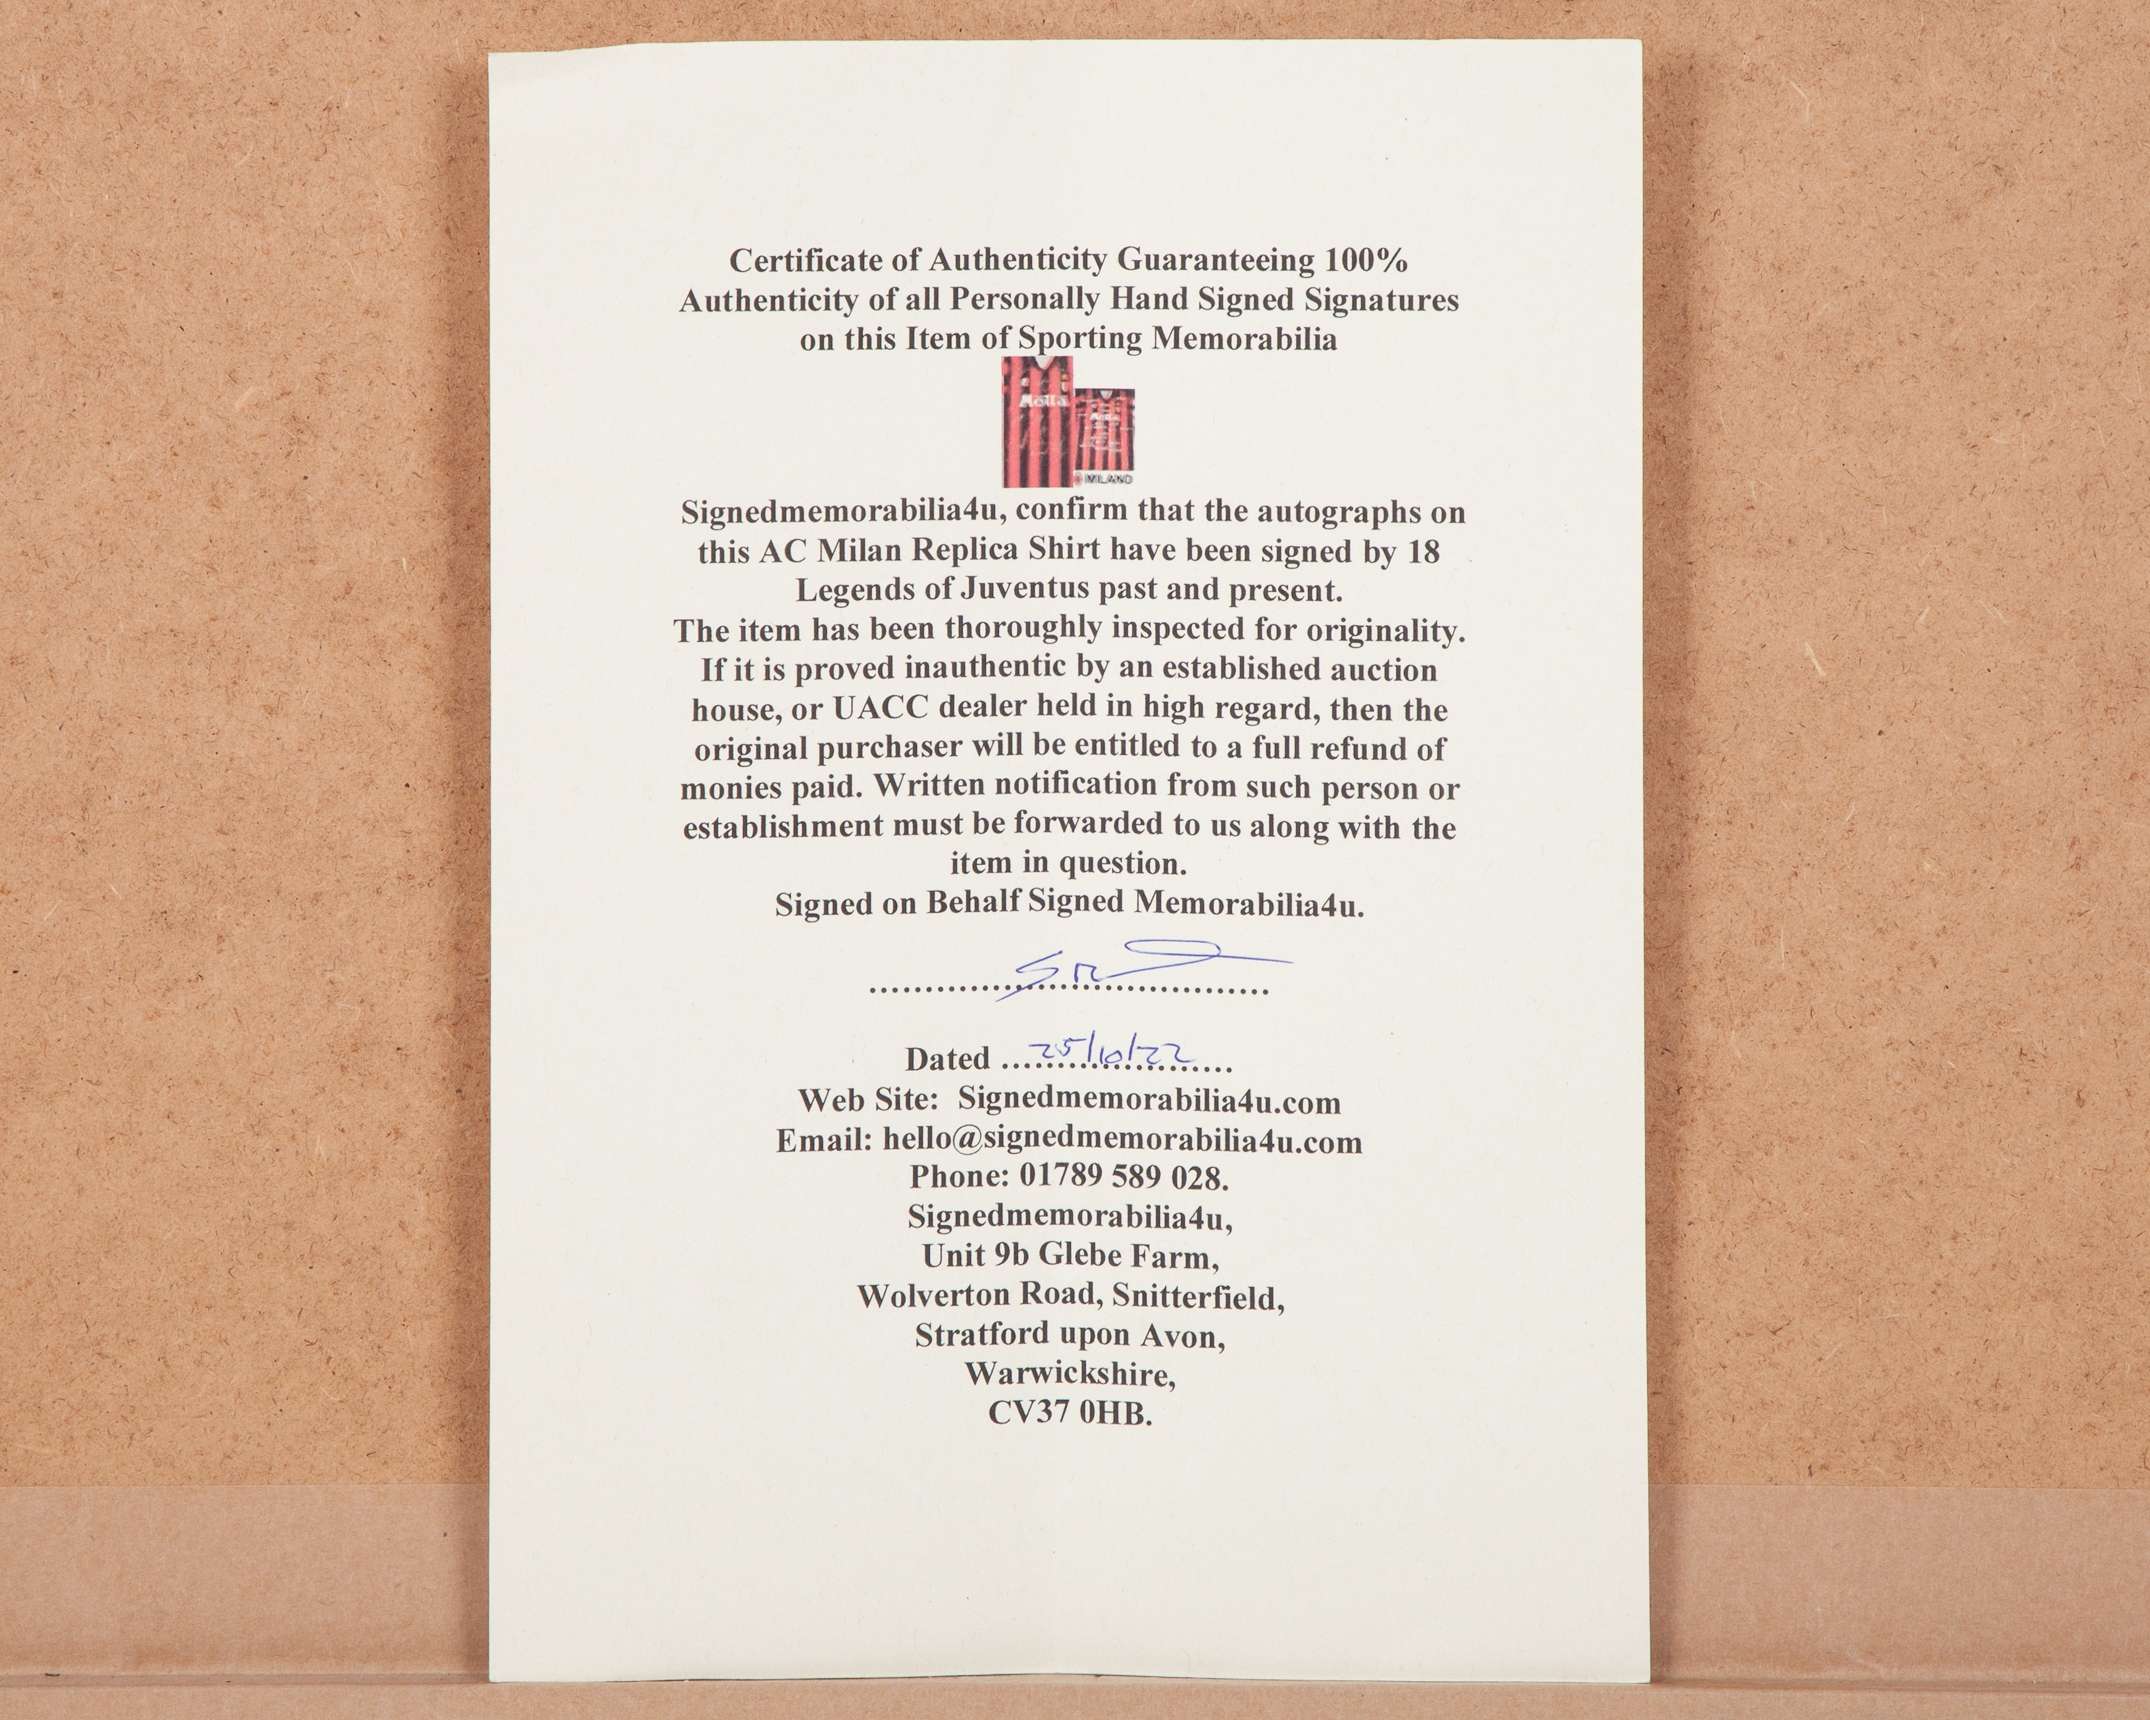 Certificate of Authenticity Guaranteeing 100%
Authenticity of all Personally Hand Signed Signatures
on this Item of Sporting Memorabilia
Motta
MILANO
Signedmemorabilia4u, confirm that the autographs on
this AC Milan Replica Shirt have been signed by 18
Legends of Juventus past and present.
The item has been thoroughly inspected for originality.
If it is proved inauthentic by an established auction
house, or UACC dealer held in high regard, then the
original purchaser will be entitled to a full refund of
monies paid. Written notification from such person or
establishment must be forwarded to us along with the
item in question.
Signed on Behalf Signed Memorabilia4u.
Dated 25/10/22
Web Site: Signedmemorabilia4u.com
Email: hello@signedmemorabilia4u.com
Phone: 01789 589 028.
Signedmemorabilia4u,
Unit 9b Glebe Farm,
Wolverton Road, Snitterfield,
Stratford upon Avon,
Warwickshire,
CV37 0HB.